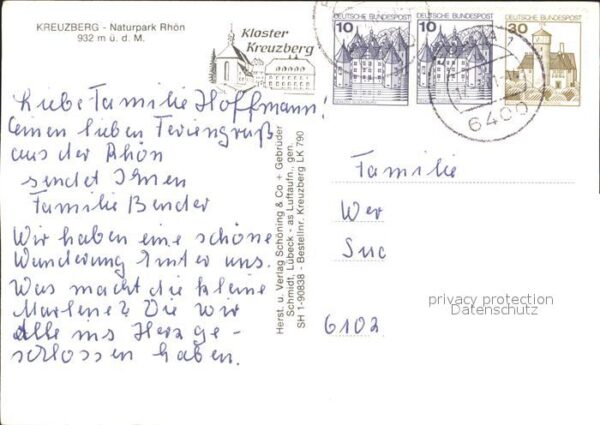 KREUZBERG - Naturpark Rhön
932 m ü. d. M.
Kloster
Kreuzberg
DEUTSCHE BUNDESPOST
10
DEUTSCHE BUNDESPOST
10
DEUTSCHE BUNDESPOST
30
6400
Liebe Familie Hoffmann!
einen lieben Feriengruß
aus der Rhön
sendet Ihnen
Familie Bender
Wir haben eine schöne
Wanderung hinter uns.
Was macht die kleine
Marlene? Die wir
alle ins Herz ge-
schlossen haben.
Herst. u. Verlag Schöning & Co + Gebrüder
Schmidt, Lübeck - as Luftaufn., gen.
SH 1-90838 - Bestellnr. Kreuzberg LK 790
Familie
Wer
Suc
6102
privacy protection
Datenschutz